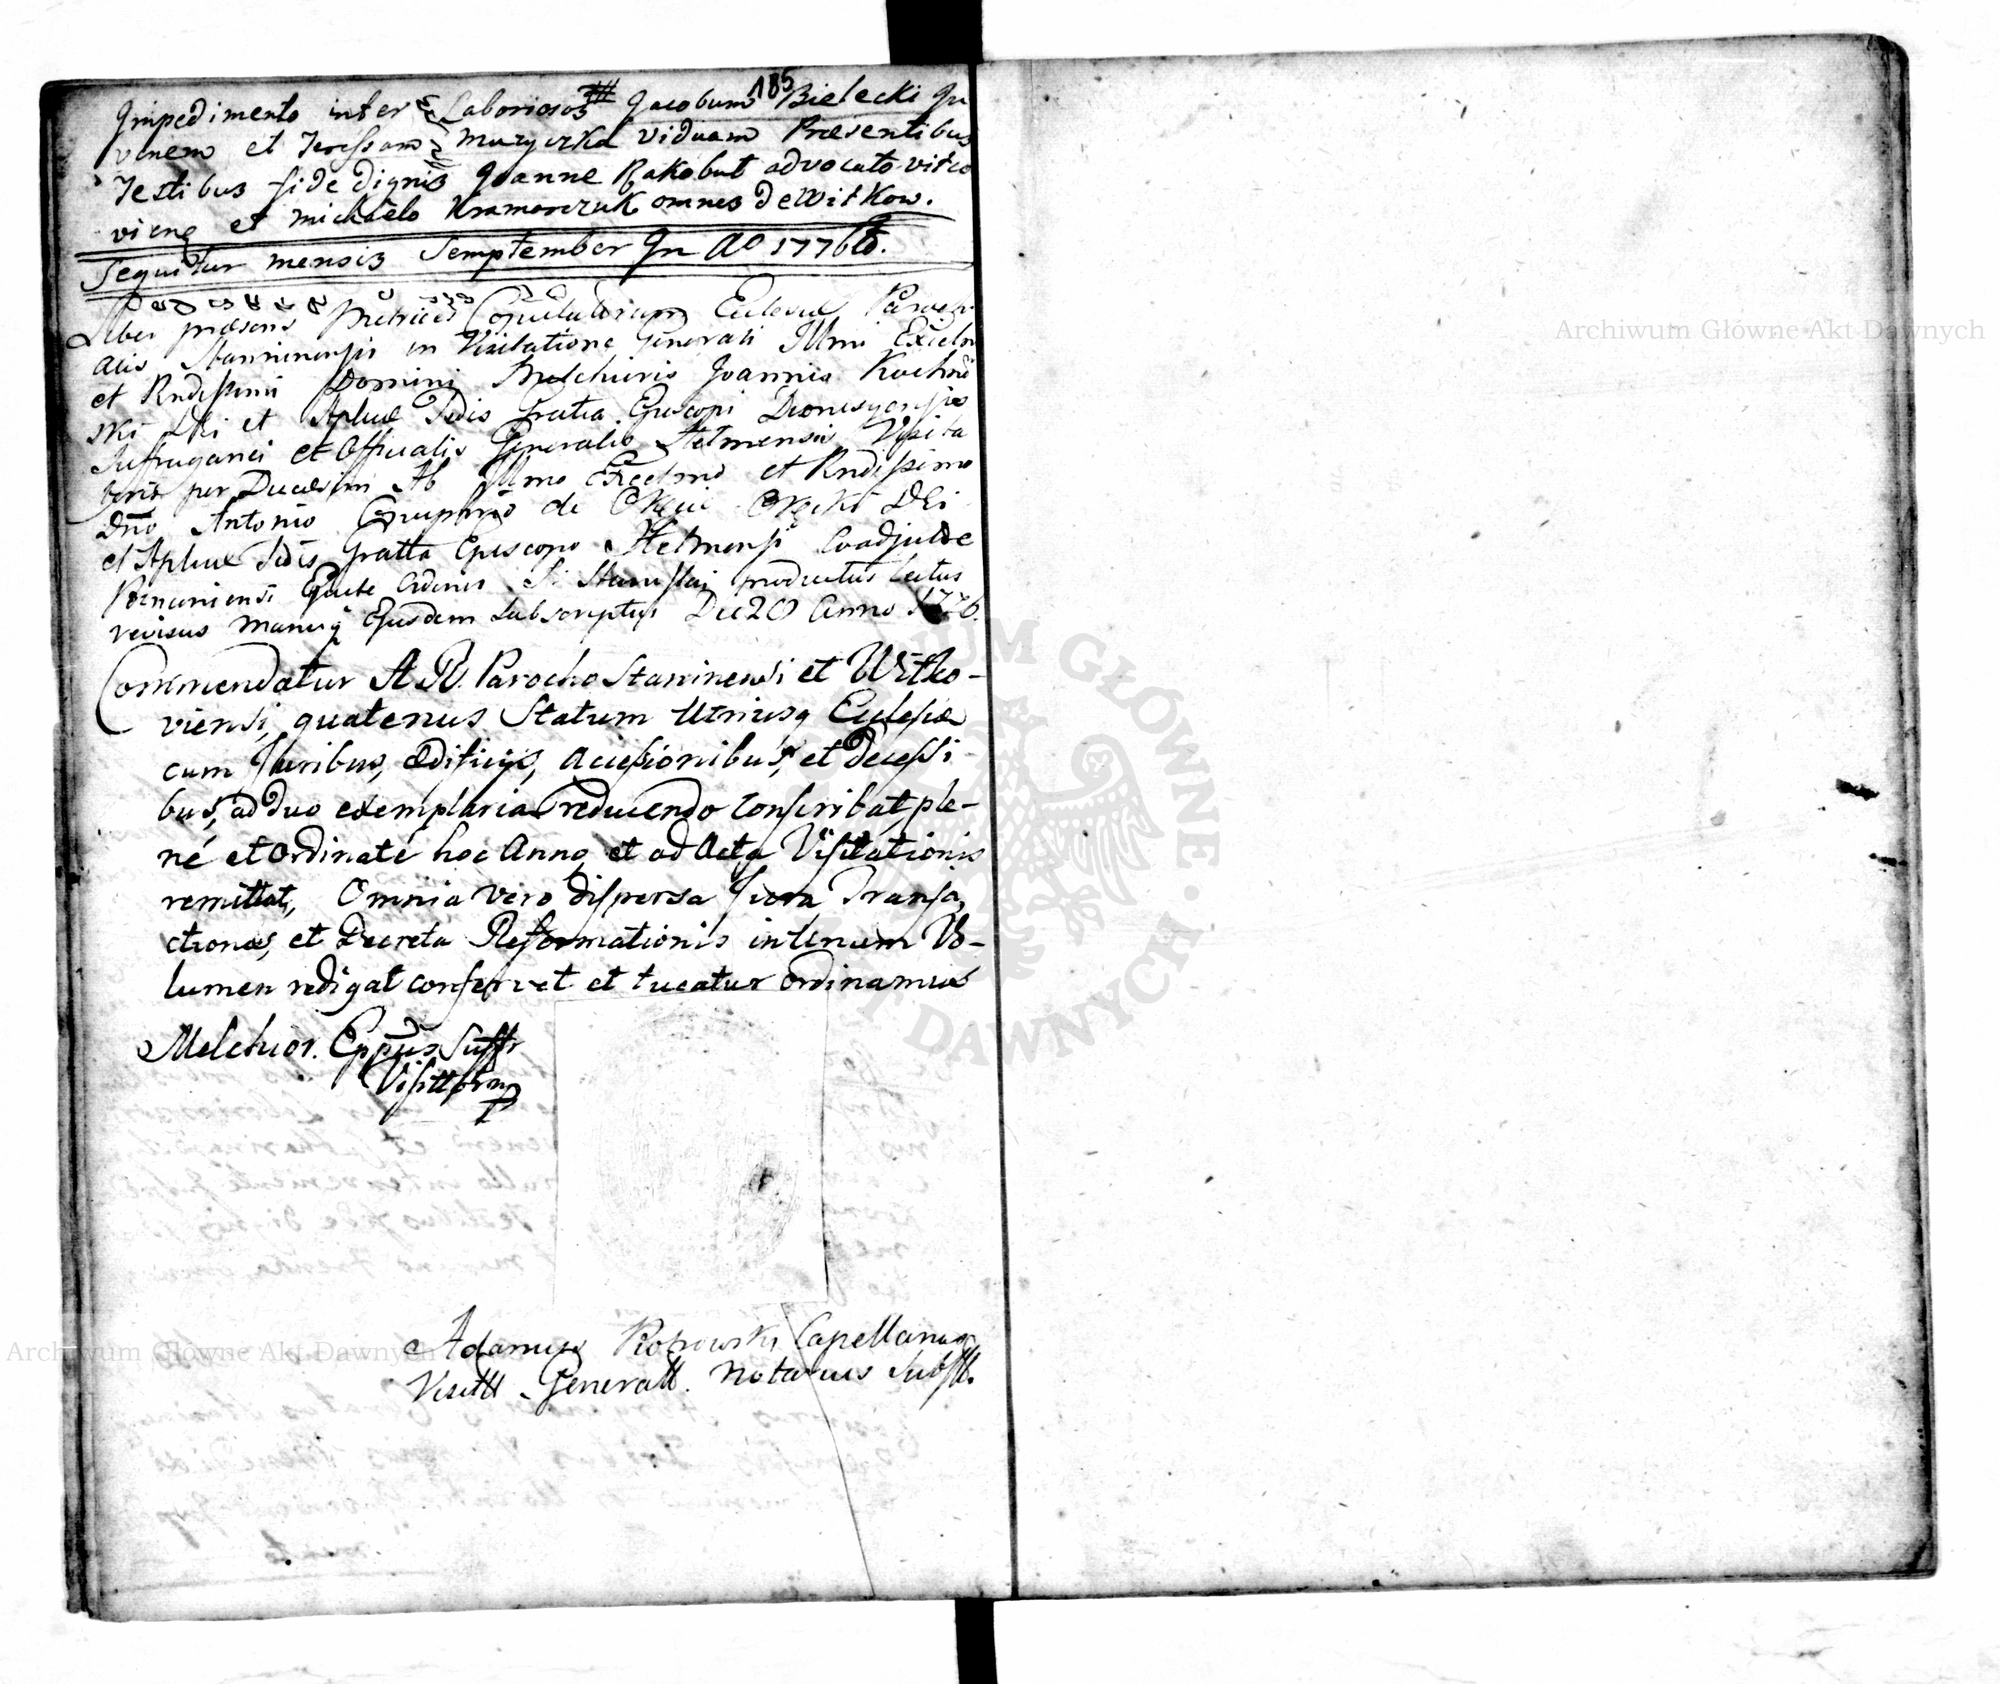 185
Impedimento inter Laboriosos Jacobum Bielecki Ju
venem et Teressam Muzyczka viduam Presentibus
Testibus fide dignis Joanne Rakobut advocato vitco
viene et Michaelo Kramarczuk omnes de Witkow.
Sequitur mensis Semptember In Ao 1776to.
Liber præsens Metrices Copulatorum Eclesiæ Paroch
alis Starninensis in Visitatione Generali Illmi Excelm
et Rndissimi Domini Melchioris Joannis Kochno
ski Dei et Aplicæ Sedis Gratia Episcopi Dionisyensis
Suffraganei et Officialis Generalis Helmensis Visita
toris per Ducesim Ab Illmo Excelmo et Rndissimo
Dno Antonio de Okęcie Okęcki Dei
et Aplicæ Sedis Gratia Episcopo Helmensi Coadjutore
Posnaniensi Equite Ordinis S. Stanislai productus lectus
revisus manuq Ejusdem Subscriptus Die 20 Anno 1776.
Commendatur A. R. Parocho Starninensi et Witko-
viensi, quatenus Statum Utriusq Eclesiæ
cum Juribus, ædificijs, accessionibus, et decessi-
bus, ad duo exemplaria reducendo conscribat, ple-
né et ordinaté hoc Anno, et ad Acta Visitationis
remittat, Omnia vero dispersa Jura, Transa,
ctiones, et Decreta Reformationis in Unum Vo-
lumen redigat conservet et tueatur ordinamus
Melchior. Eppus Suffr
Visittor mp
Adamus Capellanus
Visitt Generall. Notarius Subsst.
Archiwum Główne Akt Dawnych
Archiwum Główne Akt Dawnych
ARCHIWUM GŁÓWNE · AKT DAWNYCH ·